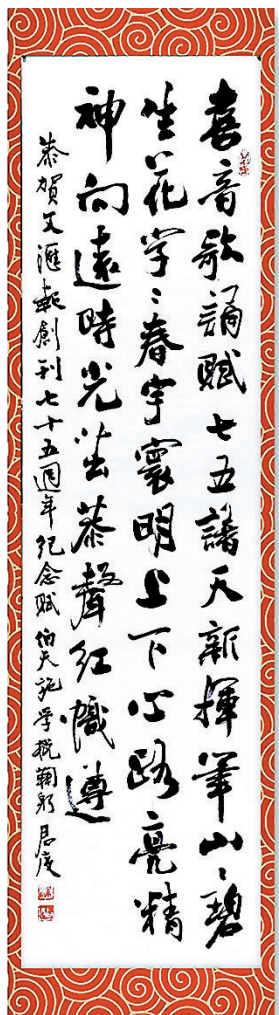 喜音歌誦賦七五譜天新揮筆山〻碧
生花字〻春宇寰明上下心路亮精
神向遠時光
聲紅幟遵
恭賀文滙報創刊七十五週年紀念賦伯天施学概鞠躬